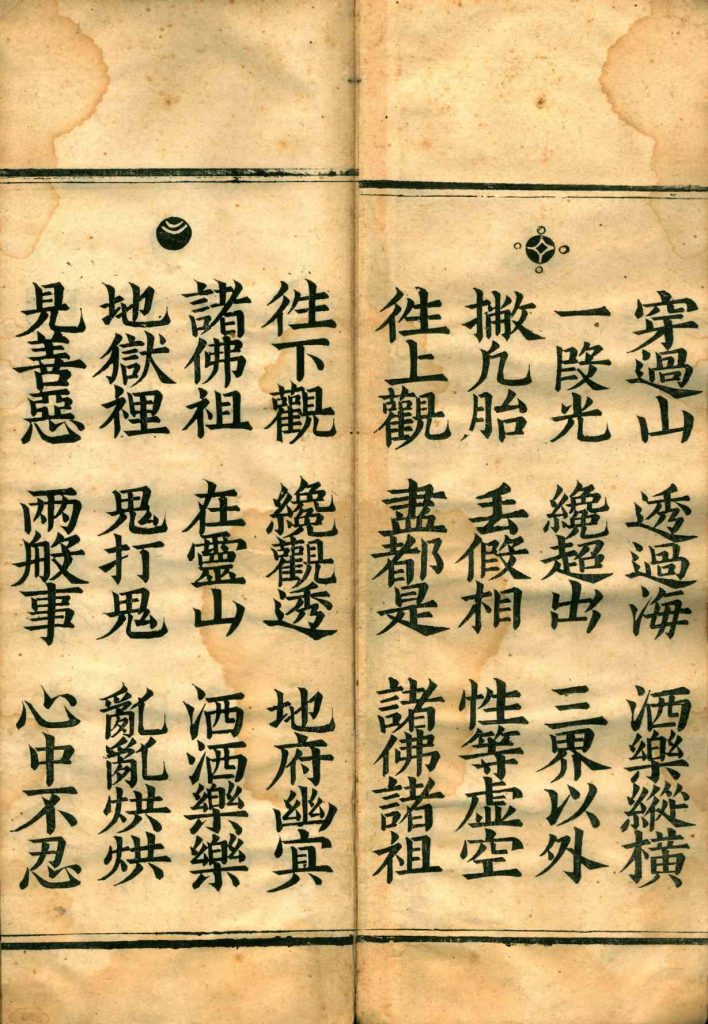 穿過山 透過海 洒樂縱橫
一段光 纔超出 三界以外
撇凡胎 丢假相 性等虚空
徃上觀 盡都是 諸佛諸祖
徃下觀 纔觀透 地府幽冥
諸佛祖 在靈山 洒洒樂樂
地獄裡 鬼打鬼 亂亂烘烘
見善惡 兩般事 心中不忍